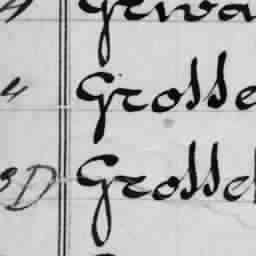 4 Gewa
4 Grosse
3D Grossel